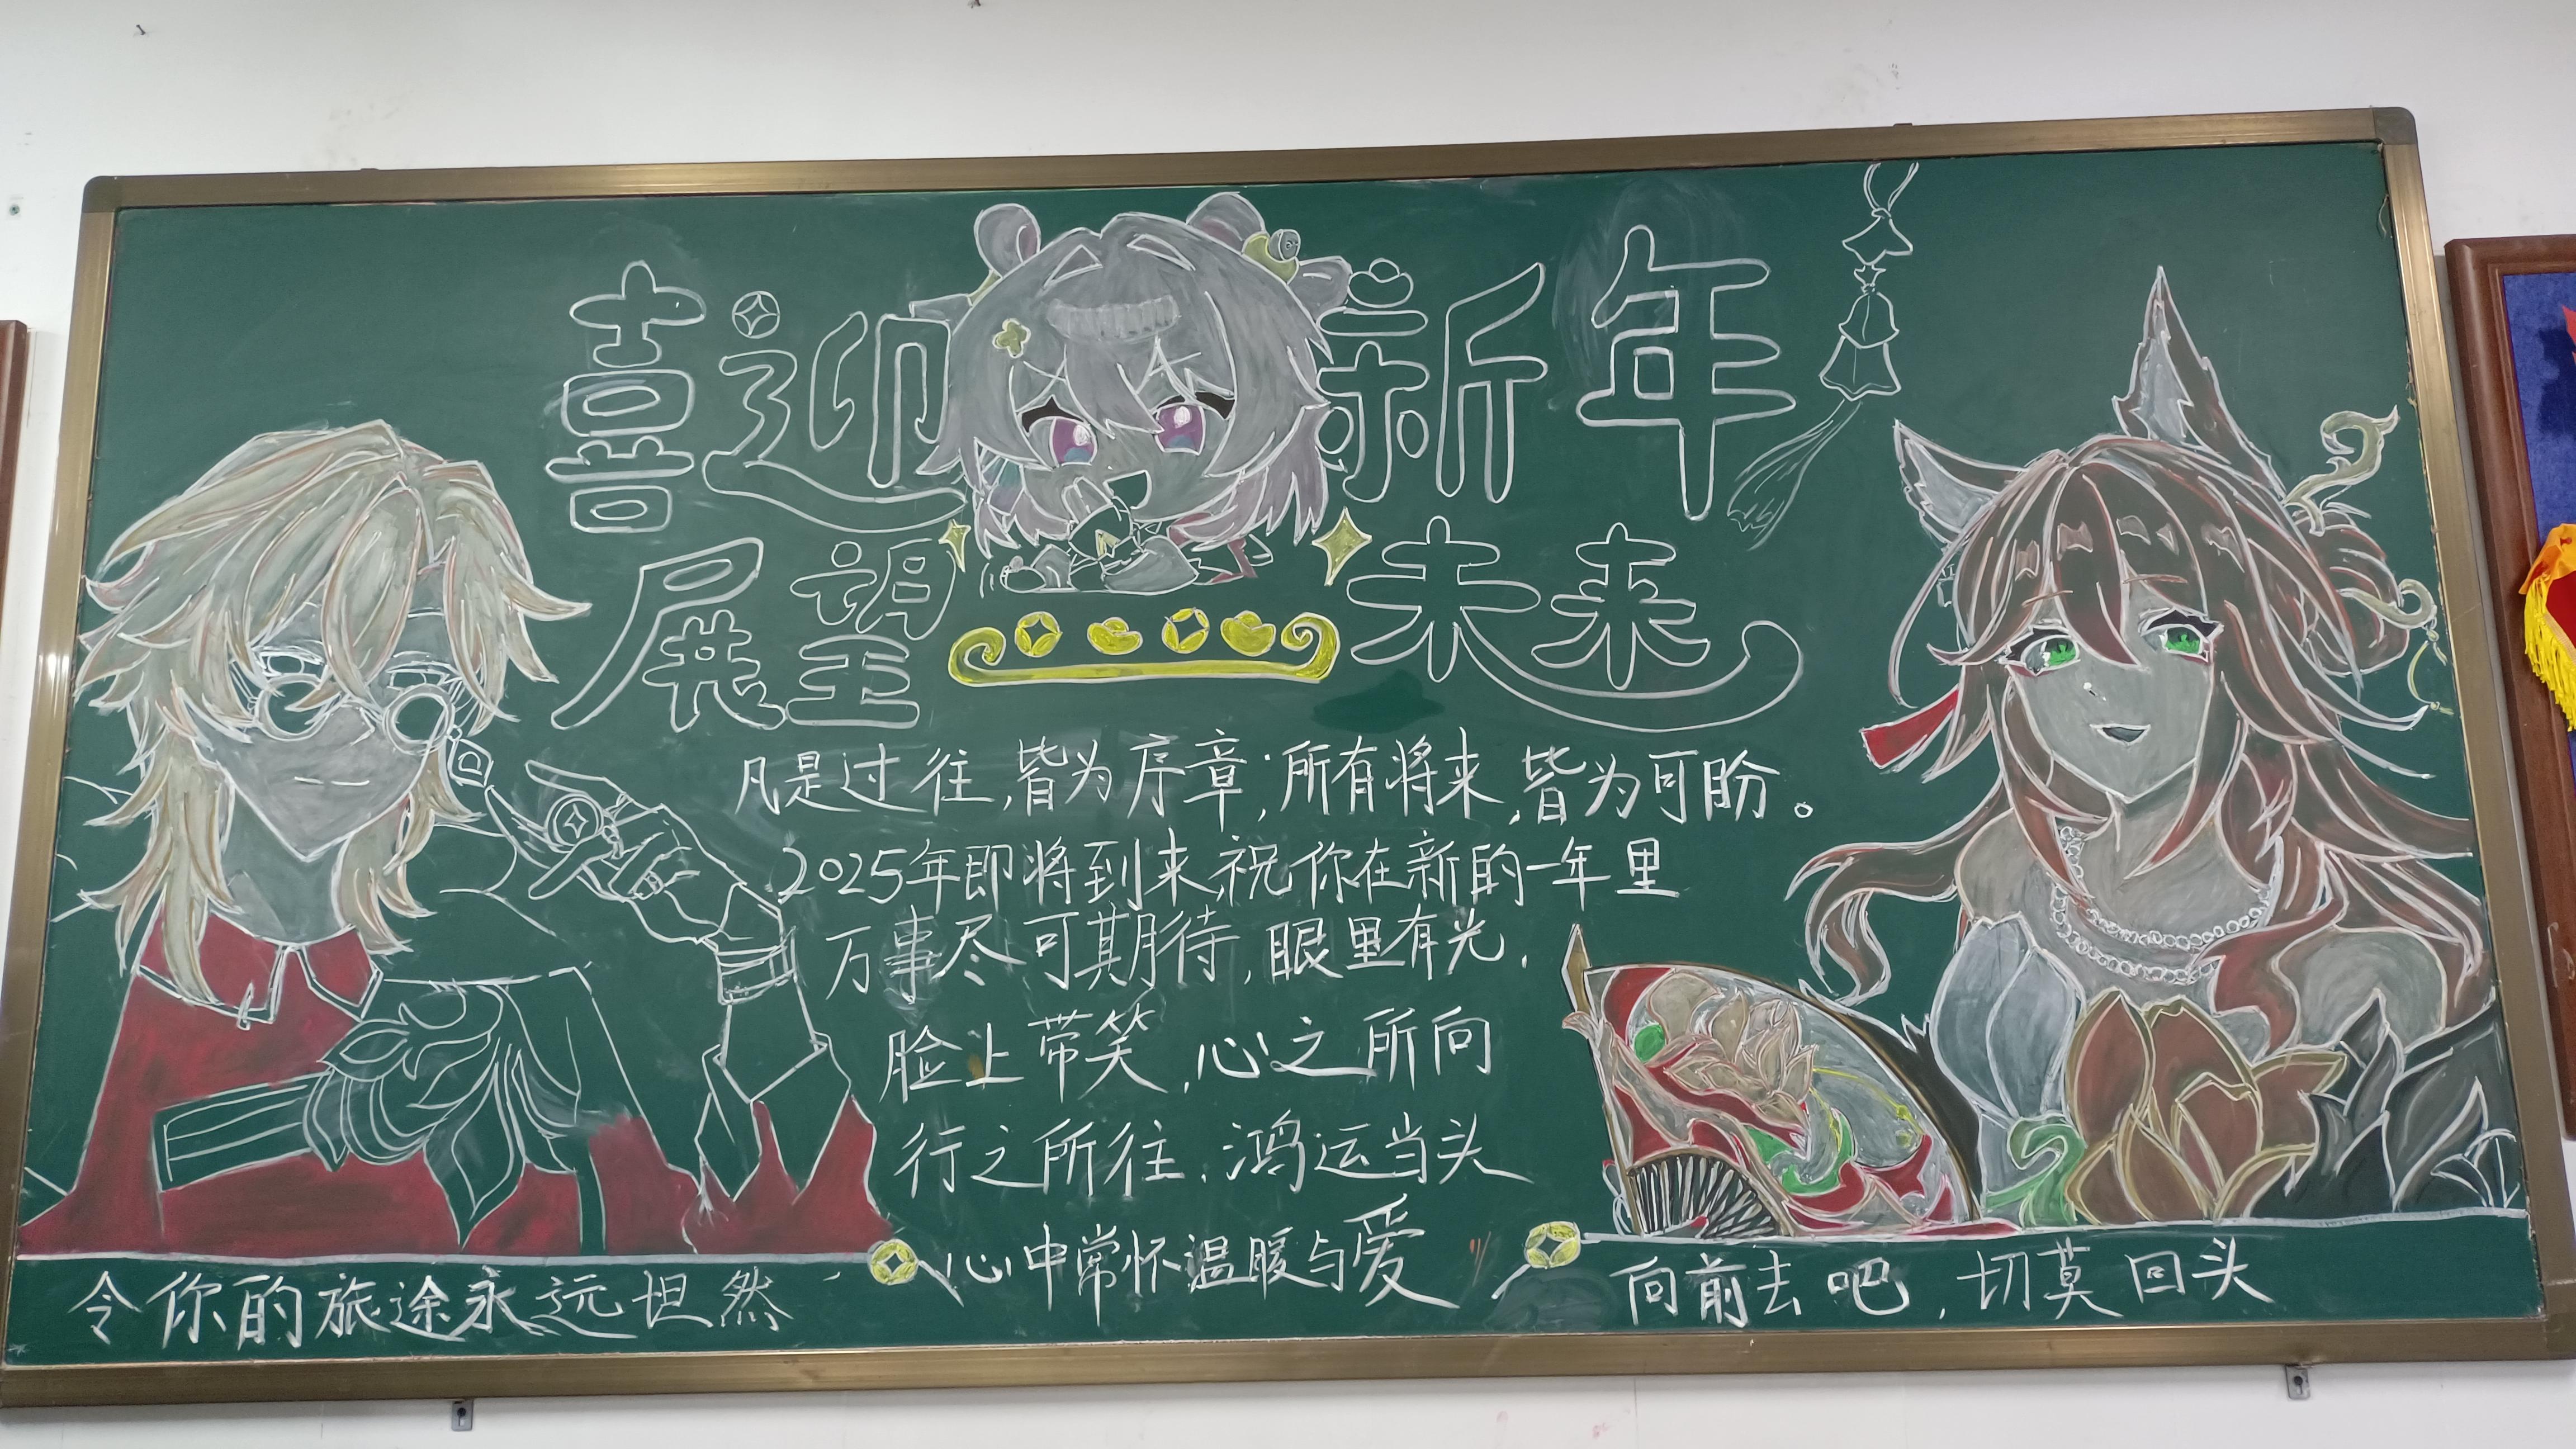 喜迎新年
展望未来
凡是过往,皆为序章;所有将来,皆为可盼。
2025年即将到来,祝你在新的一年里
万事尽可期待,眼里有光,
脸上带笑,心之所向
行之所往,鸿运当头
心中常怀温暖与爱
令你的旅途永远坦然
向前去吧,切莫回头